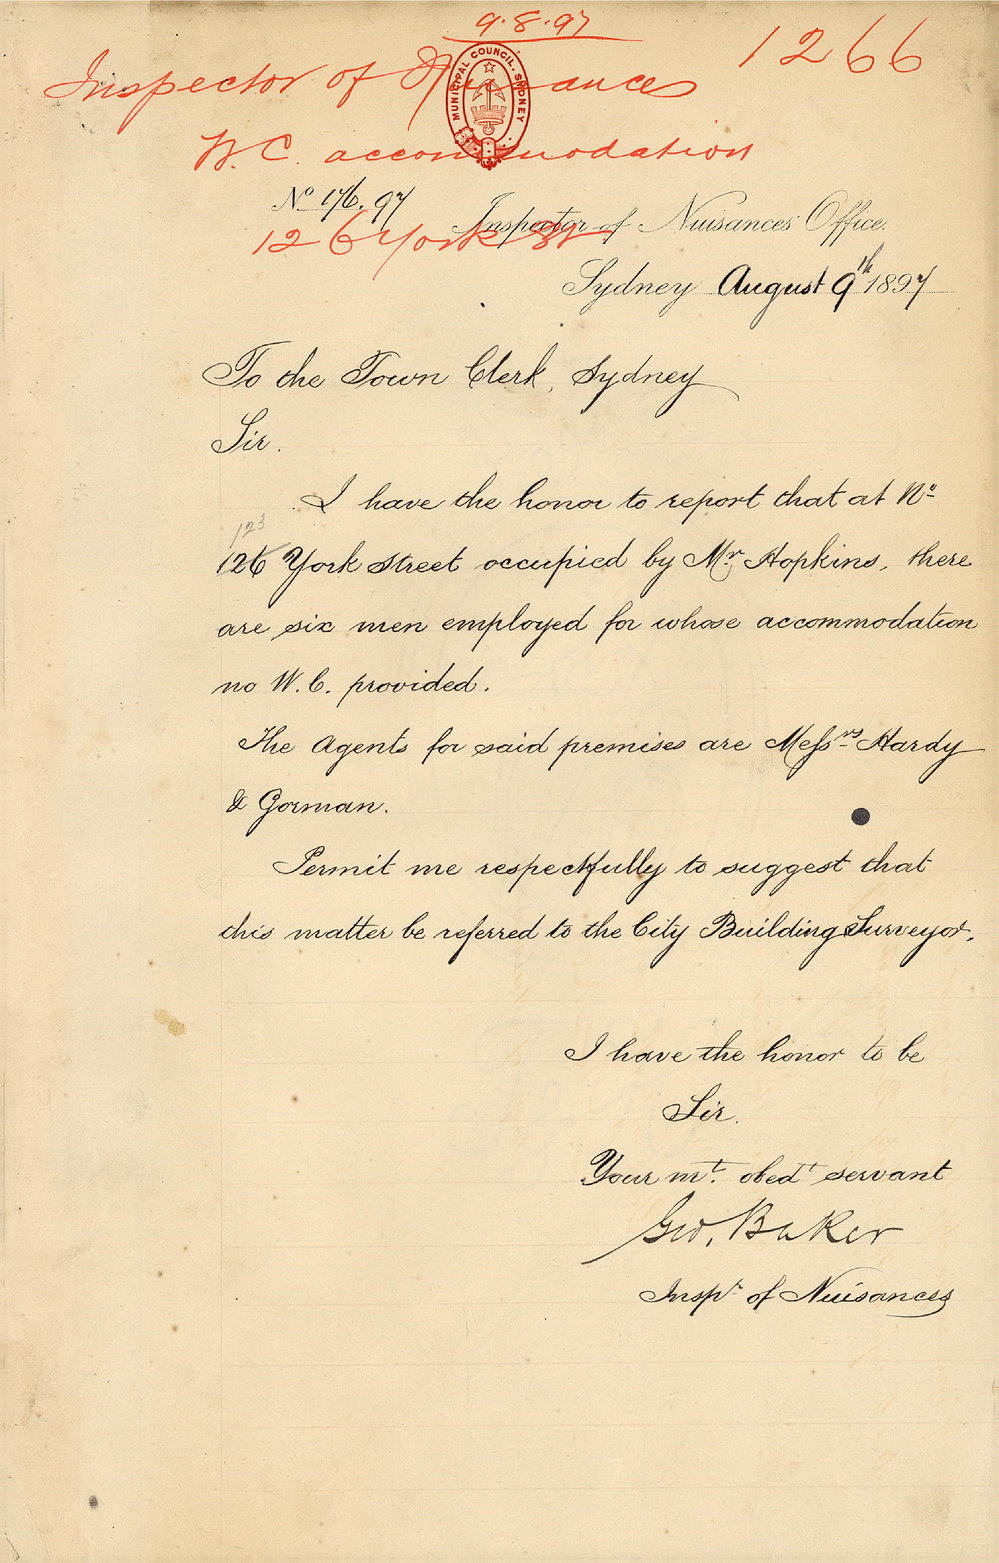 9.8.97
1266
Inspector of Nuisances
MUNICIPAL COUNCIL. SYDNEY
W.C. accommodation
No 176.97
Inspector of Nuisances Office.
126 York St
Sydney August 9th 1897
To the Town Clerk, Sydney
Sir.
I have the honor to report that at No
123
126 York Street occupied by Mr Hopkins, there
are six men employed for whose accommodation
no W.C. provided.
The Agents for said premises are Messrs Hardy
& Gorman.
Permit me respectfully to suggest that
this matter be referred to the City Building Surveyor.
I have the honor to be
Sir.
Your mt. obedt servant
Geo. Baker
Inspr of Nuisances